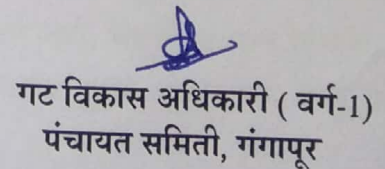 गट विकास अधिकारी ( वर्ग-1)
पंचायत समिती, गंगापूर